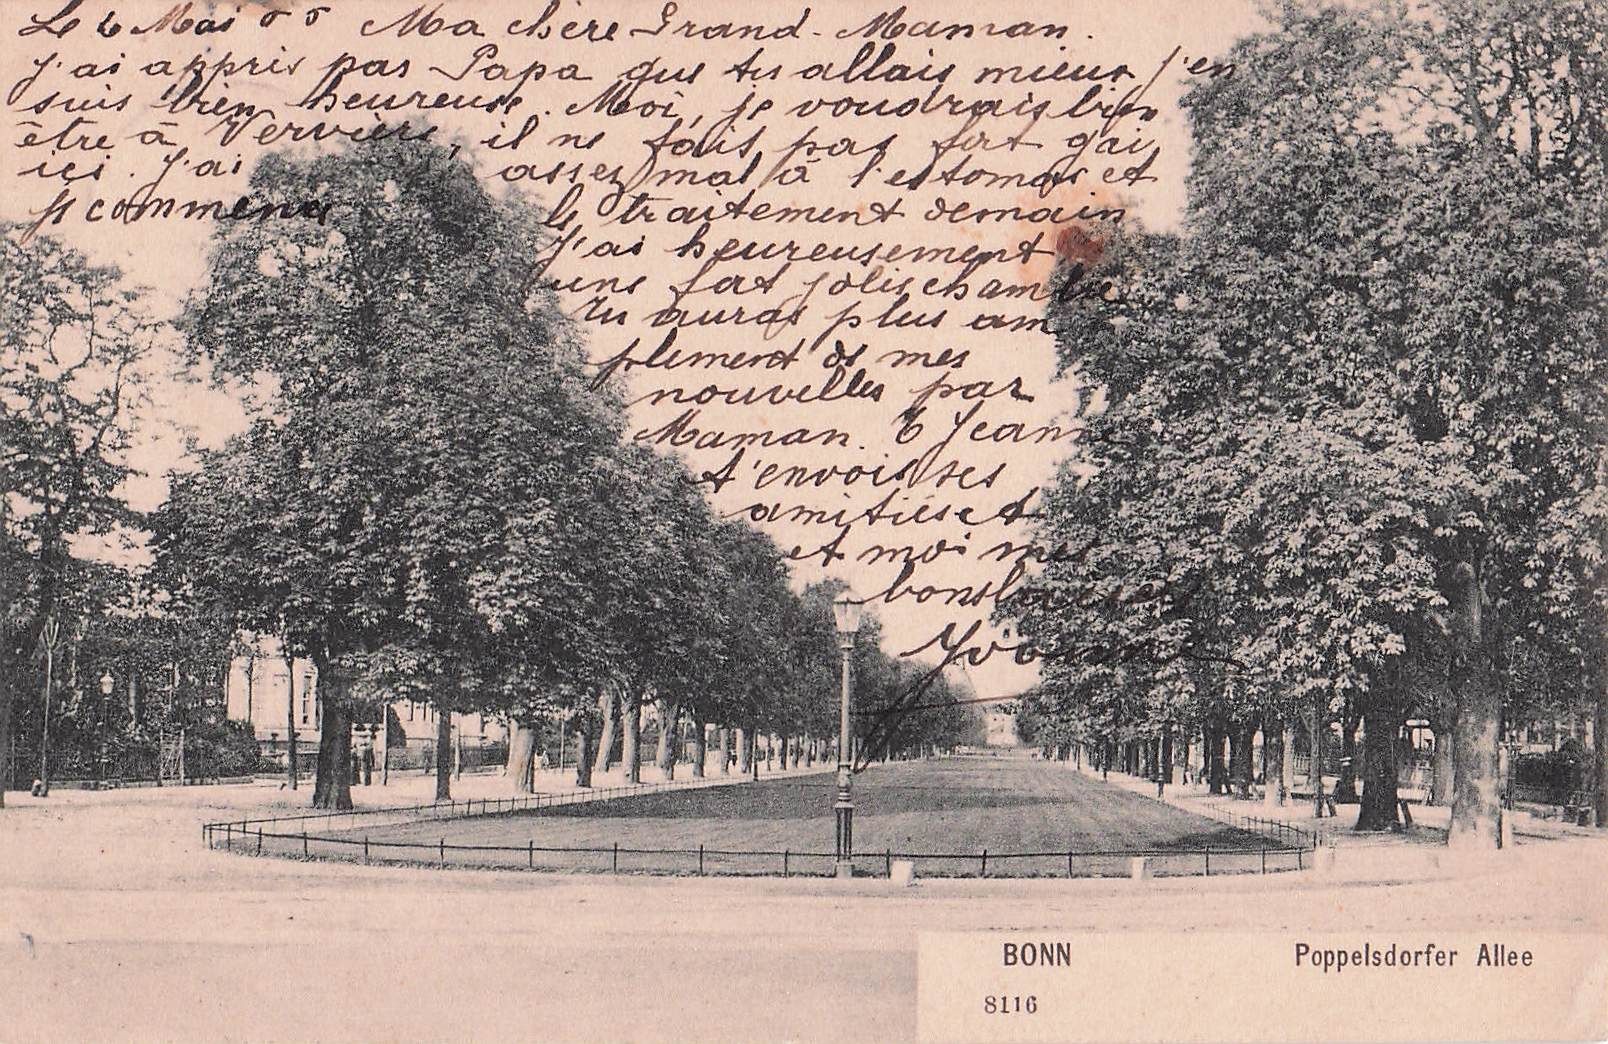 Le 6 Mai Ma chère Grand-Maman.
J'ai appris par Papa que tu allais mieux, j'en
suis bien heureuse. Moi, je voudrais bien
être à Verviers, il ne fais pas fort gai
ici. J'ai assez mal à l'estomac et
je commence le traitement demain
J'ai heureusement
une fort jolie chambre
Tu auras plus am
plement de mes
nouvelles par
Maman. Jeanne
t'envois ses
amitiés et
et moi mes
bons baisers
Yvonne
BONN Poppelsdorfer Allee
8116